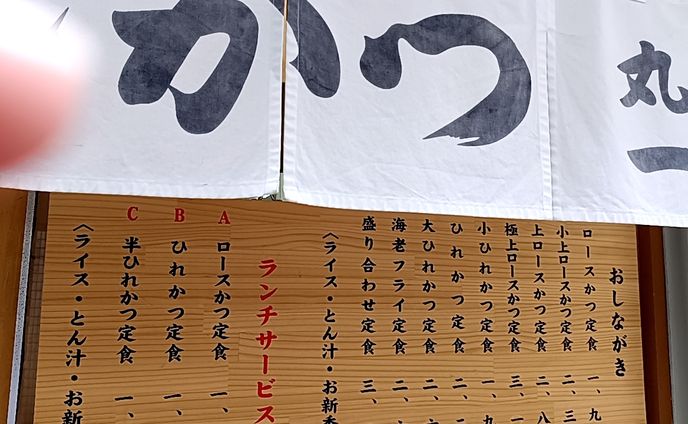 かつ
丸一
おしながき
ロースかつ定食 一、九
小上ロースかつ定食 二、三
上ロースかつ定食 二、八
極上ロースかつ定食 三、
小ひれかつ定食 一、九
ひれかつ定食 二、
大ひれかつ定食 二、
海老フライ定食 二、
盛り合わせ定食 三、
〈ライス・とん汁・お新香
ランチサービス
A ロースかつ定食 一、
B ひれかつ定食 一、
C 半ひれかつ定食 一、
〈ライス・とん汁・お新